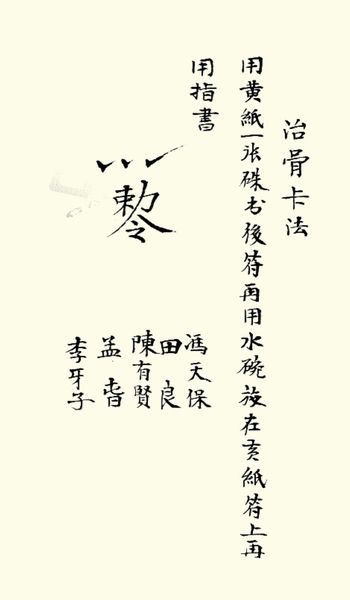 治骨卡法
用黄紙一张硃书後符再用水碗放在黄紙符上再
用指書
勅令
馮天保
田良
陳有賢
孟
李牙子